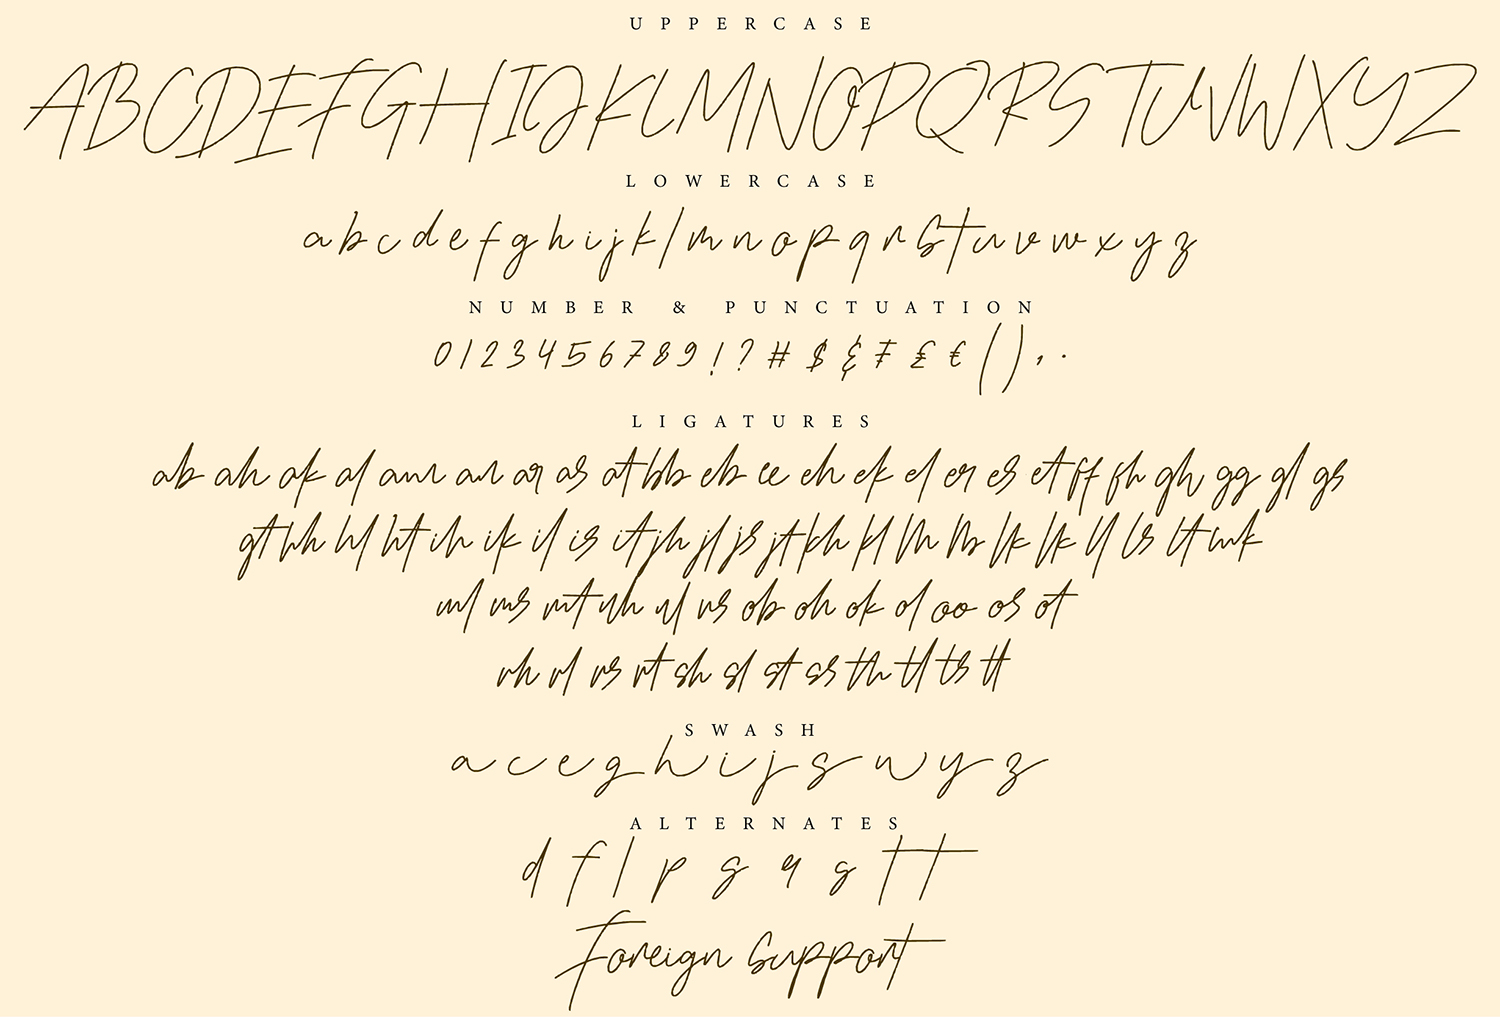 UPPERCASE
ABCDEFGHIJKLMNOPQRSTUVWXYZ
LOWERCASE
abcdefghijklmnopqrstuvwxyz
NUMBER & PUNCTUATION
0123456789!?#$&₣£€(),.
LIGATURES
ab ah ak al am an ar as at bb eb ee eh ek el er es et ff fh gh gg gl gs
gt hh hl ht ih ik il is it jh jl js jt kh kl lh lb lk lk ll ls lt mk
ml ms mt nh nl ns ob oh ok ol oo os ot
rh rl rs rt sh sl st ss th tl ts tt
SWASH
a c e g h i j s w y z
ALTERNATES
d f l p s s t t
Foreign Support